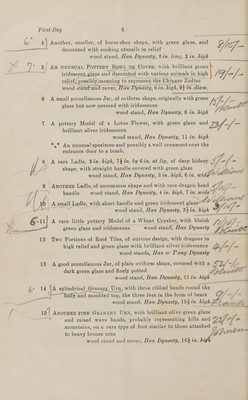 First Day 4
4 Another, smaller, of horse-shoe shape, with green glaze, and
decorated with cooking utensils in relief
wood stand, Han Dynasty, 9 in. long, 3 in. high
5 An unusual Pottery Bowl or Cover, with brilliant green
iridescent glaze and decorated with various animals in high
relief, possibly meaning to represent the Chinese Zodiac
wood stand and cover, Han Dynasty, 6 in. high, 9¾ in. diam.
6 A small porcellanous Jar, of oviform shape, originally with green
glaze but now covered with iridescence
wood stand, Han Dynasty, 6 in. high
7 A pottery Model of a Lotus Flower, with green glaze and
brilliant silver iridescence
wood stand, Han Dynasty, 11 in. high
*** An unusual specimen and possibly a wall ornament over the
entrance door to a tomb.
8 A rare Ladle, 3 in. high, 7¾ in. by 6 in. at lip, of deep kidney
shape, with straight handle covered with green glaze
wood stand, Han Dynasty, 5 in. high, 6 in. wide
9 Another Ladle, of uncommon shape and with rare dragon head
handle wood stand, Han Dynasty, 4 in. high, 7 in. wide
10 A small Ladle, with short handle and green iridescent glaze
wood stand, Han Dynasty, 3¾ in. high
11 A rare little pottery Model of a Wheat Crusher, with bluish
green glaze and iridescence wood stand, Han Dynasty
12 Two Portions of Roof Tiles, of unusual design, with dragons in
high relief and green glaze with brilliant silver iridescence
wood stands, Han or T'ang Dynasty
13 A good porcellanous Jar, of plain oviform shape, covered with a
dark green glaze and finely potted
wood stand, Han Dynasty, 11 in. high
14 A cylindrical Granary Urn, with three ribbed bands round the
body and moulded top, the three feet in the form of bears
wood stand, Han Dynasty, 15½ in. high
15 Another fine Granary Urn, with brilliant olive green glaze
and raised wave bands, probably representing hills and
mountains, on a rare type of foot similar to those attached
to heavy bronze urns
wood stand and cover, Han Dynasty, 16½ in. high